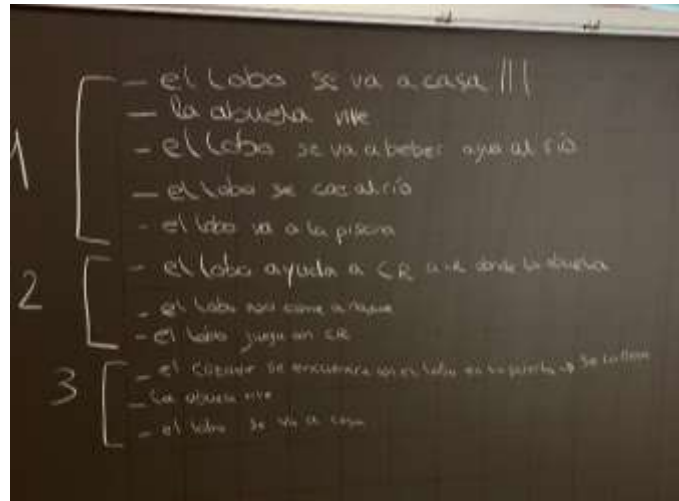 1
- el lobo se va a casa |||
- la abuela vive
- el lobo se va a beber agua al río
- el lobo se cae al río
- el lobo va a la piscina
2
- el lobo ayuda a CR a ir donde la abuela
- el lobo come a
- el lobo juega con CR
3
- el cazador se encuentra con el lobo en la puerta → se lo lleva
- La abuela vive
- el lobo se va a casa